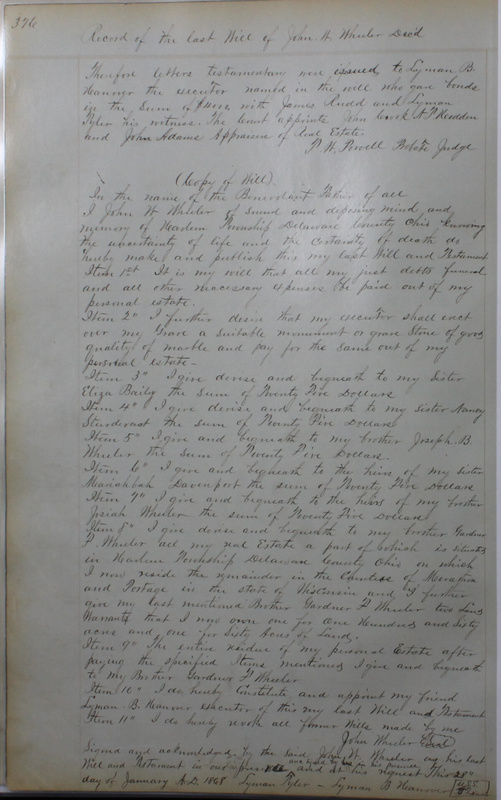 376
Record of the last Will of John W Wheeler Decd
Therefore letters testamentary were issued to Lyman B.
Hanover the executor named in the will who gave bonds
in the sum of with James Rudd and Lyman
Tyler his witness. The Court appoints John Cook A P
and John Adams Appraisers of Real Estate.
T. W. Powell Probate Judge
(Copy of Will)
In the name of the Benevolent Father of all
I John W Wheeler of sound and disposing mind and
memory of Harlem Township Delaware County Ohio knowing
the uncertainty of life and the certainty of death do
hereby make and publish this my last Will and Testament
Item 1st It is my will that all my just debts funeral
and all other necessary expenses be paid out of my
personal estate.
Item 2" I further desire that my executor shall erect
over my Grave a suitable monument or grave Stone of good
quality of marble and pay for the same out of my
personal estate -
Item 3" I give devise and bequeath to my Sister
Eliza Baily the sum of Twenty Five Dollars
Item 4" I give devise and bequeath to my Sister Nancy
Sturdevant the sum of Twenty Five Dollars
Item 5" I give and bequeath to my brother Joseph B.
Wheeler the Sum of Twenty Five Dollars.
Item 6" I give and bequeath to the heirs of my sister
Davenport the sum of Twenty Five Dollars
Item 7" I give and bequeath to the heirs of my brother
Josiah Wheeler the sum of Twenty Five Dollars
Item 8" I give devise and bequeath to my brother Gardner
F. Wheeler all my real Estate a part of which is situated
in Harlem Township Delaware County Ohio on which
I now reside the remainder in the Counties of
and Portage in the state of Wisconsin and I further
give my last mentioned Brother Gardner F Wheeler two Land
Warrants that I now own one for One Hundred and Sixty
acres and one for Sixty Acres of Land.
Item 9" The entire residue of my personal Estate after
paying the specified Items mentioned I give and bequeath
to my Brother Gardner F Wheeler
Item 10" I do hereby Constitute and appoint my friend
Lyman B. Hanover executor of this my last Will and Testament
Item 11" I do hereby revoke all former Wills made by me
John Wheeler Seal
Signed and acknowledged by the said John W. Wheeler as his last
Will and Testament in our presence and signed by us in his presence and at his request This 28"
day of January A.D. 1868 Lyman Tyler - Lyman B Hanover